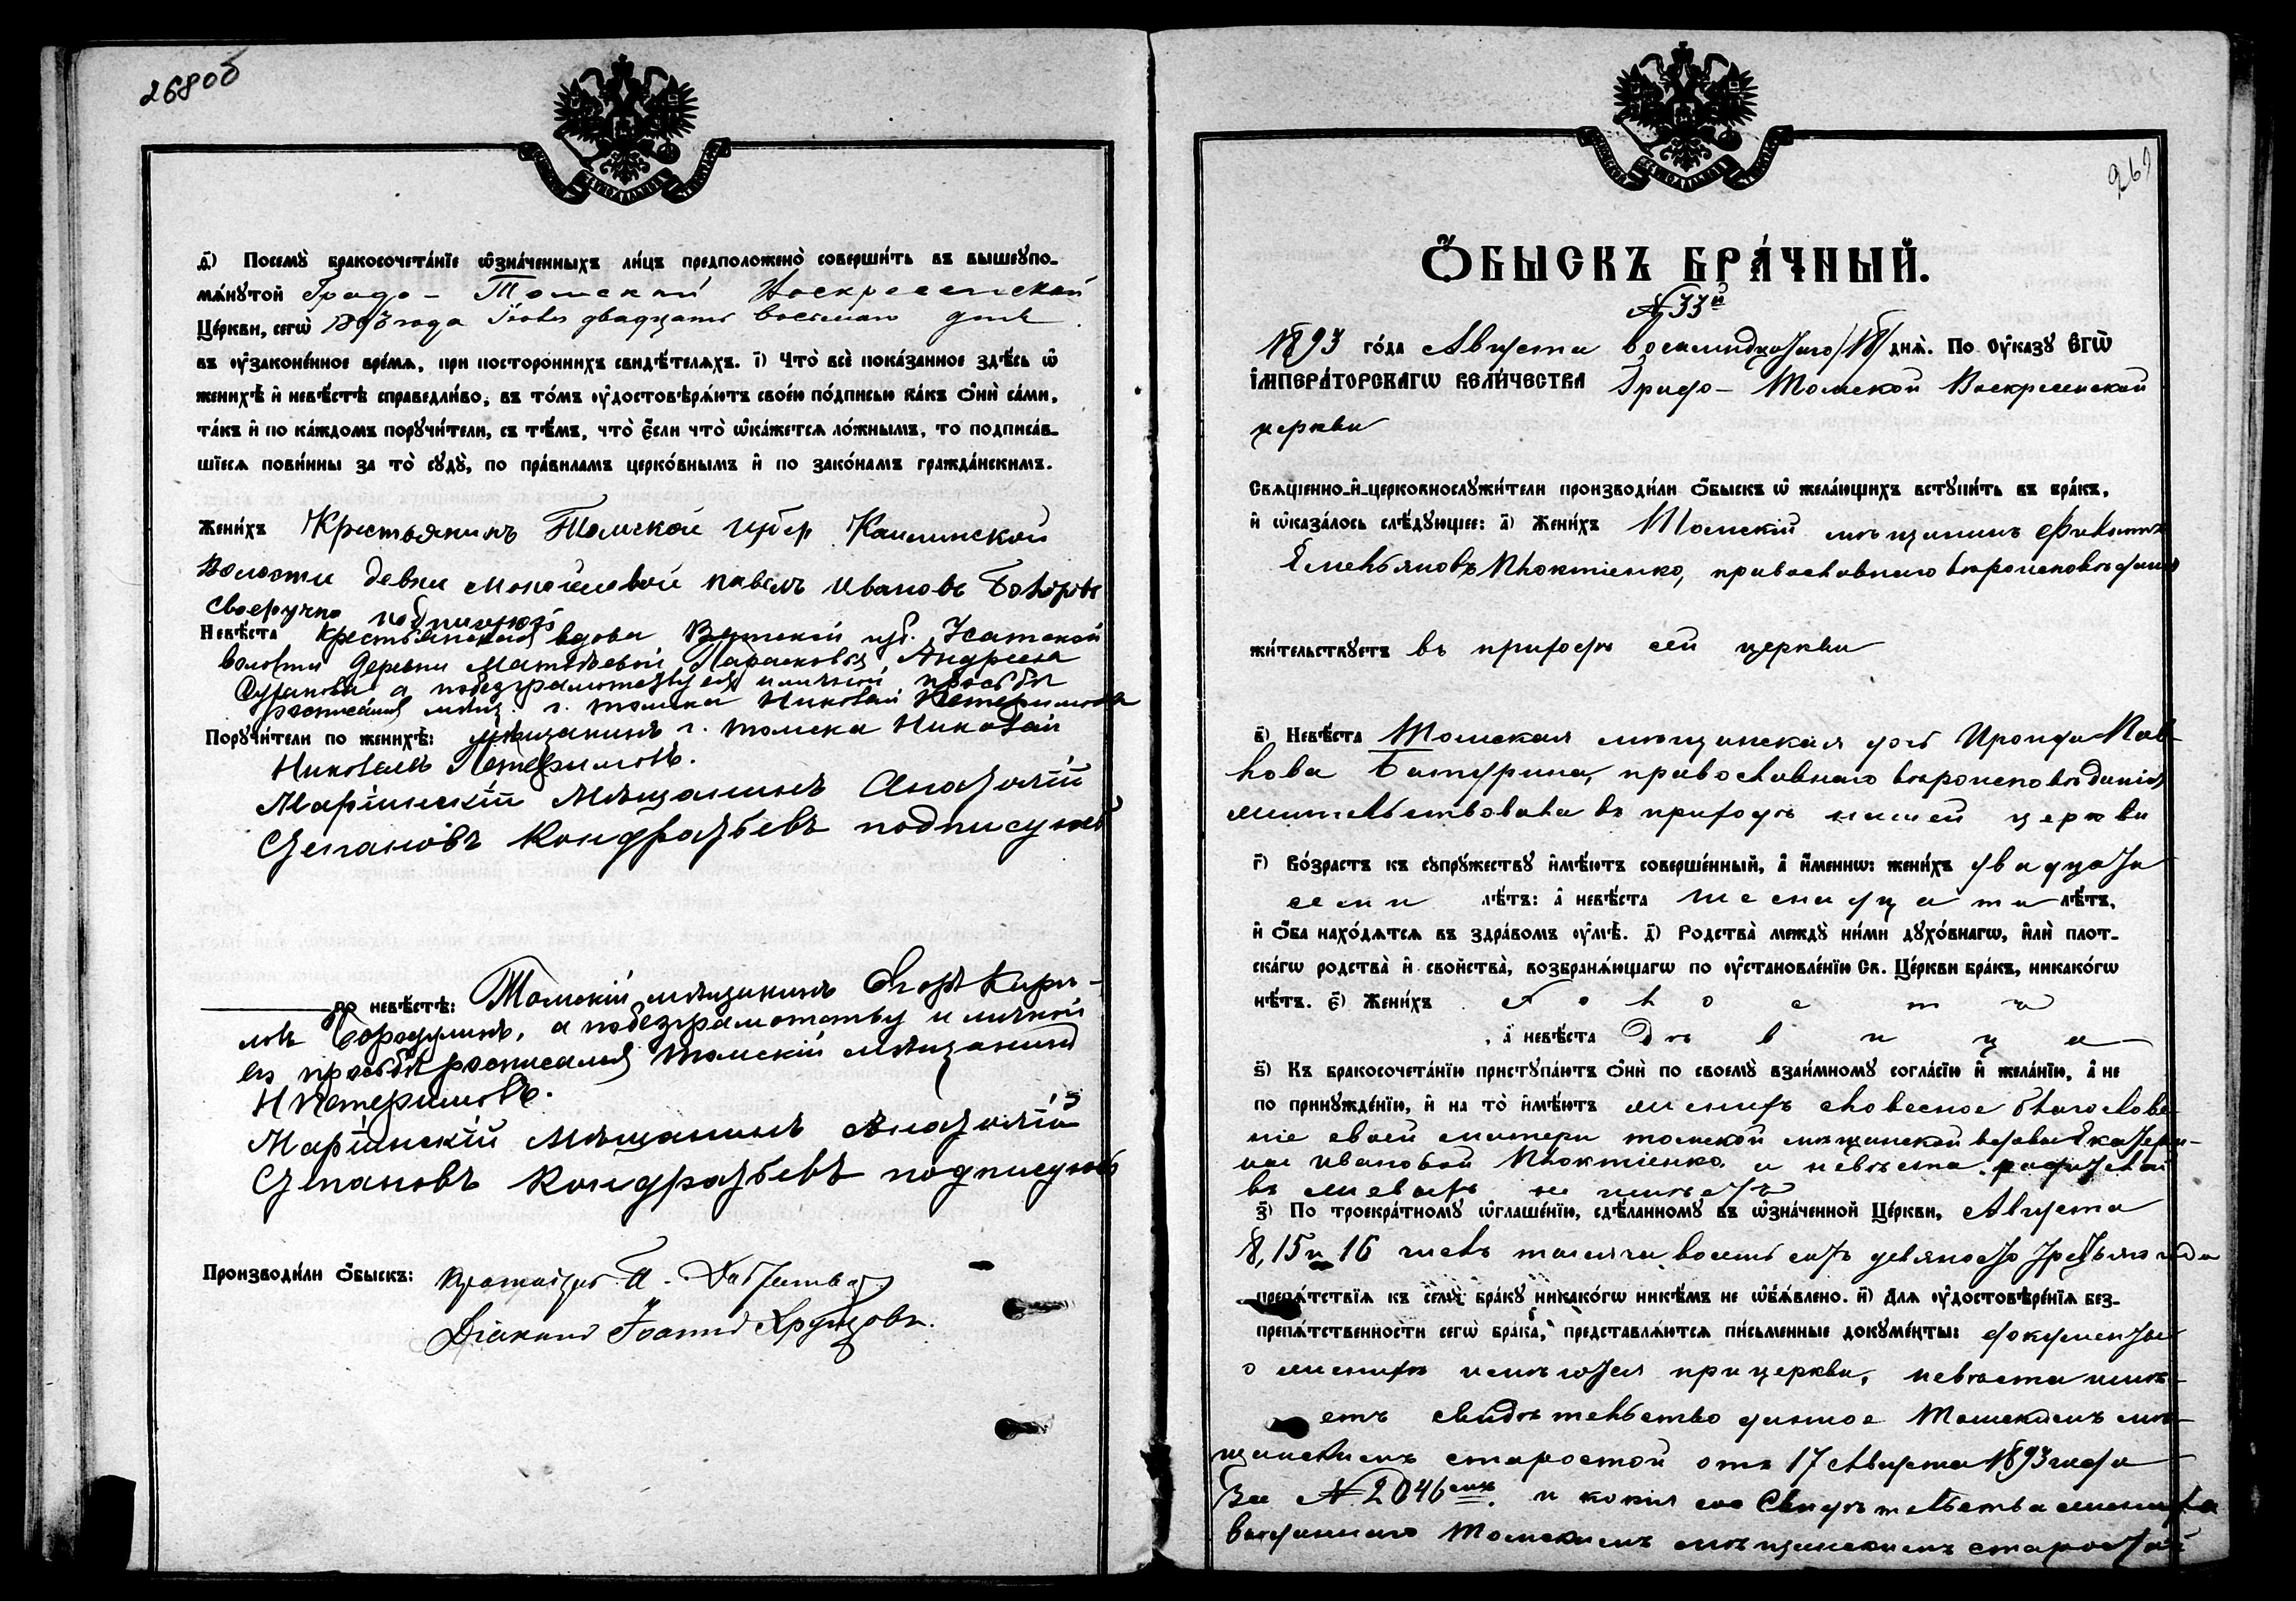 268об
д҃) Посемꙋ̀ бракосочета́нїе ѡ҆зна́ченныхъ ли́цъ предположено̀ соверши́ть въ вышеꙋпо-
мѧ́нꙋтой Градо-Томской Воскресенской
Це́ркви, сегѡ̀ 1893 года Іюля двадцать восьмаго дня
въ ᲂу҆законе́нное вре́мѧ, при посторо́ннихъ свидѣ́телѧхъ. і҃) Что̀ всѐ пока́занное здѣ́сь ѡ҆
женихѣ̀ и҆ невѣ́стѣ справедли́во, въ то́мъ ᲂу҆достовѣрѧ́ютъ свое́ю по́дписью ка́къ ѻ҆нѝ са́ми,
та́къ и҆ по ка́ждомъ порꙋчи́тели, съ тѣ́мъ, что̀ є҆́сли что̀ ѡ҆ка́жетсѧ ло́жнымъ, то подписа́в-
шїесѧ пови́нны за то̀ сꙋдꙋ̀, по пра́виламъ церко́внымъ и҆ по зако́намъ гражда́нскимъ.
Жени́хъ Крестьянинъ Томской губер Каинской
Волости девни Павелъ Ивановъ
Своеручно подписуюсь
Невѣ́ста Крестьянская вдова Вятской губ.
волости деревни Матвѣевой Парасковья Андреева
а по безграмотству ея и личной просьбѣ
росписался мѣщ. г. Томска Николай
Порꙋчи́тели по женихѣ̀: мѣщанинъ г. Томска Николай
Николаевъ
Маріинскій Мѣщанинъ Анатолій
Степановъ Кондратьевъ подписуюсь
по невѣ́стѣ: Томскій мѣщанинъ Егоръ Кири-
ловъ Бородулинъ, а по безграмотству и личной
его просьбѣ росписался Томскій мѣщанинъ
Н
Маріинскій Мѣщанинъ Анатолій
Степановъ Кондратьевъ подписуюсь
Производи́ли ѻ҆́быскъ:
Діаконъ Іоаннъ
269
Ѻ҆́БЫСКЪ БРА́ЧНЫЙ.
№ 33й
1893 го́да Августа восемнадцатаго /18/ днѧ̀. По ᲂу҆ка́зꙋ Є҆Гѡ̀
І҆МПЕРА́ТОРСКАГѠ ВЕЛИ́ЧЕСТВА Градо-Томской Воскресенской
церкви
Свѧщенно-и҆-церковнослꙋжи́тели производи́ли ѻ҆́быскъ ѡ҆ жела́ющихъ встꙋпи́ть въ бра́къ,
и҆ ѡ҆каза́лось слѣ́дꙋющее: а҃) Жени́хъ Томскій мѣщанинъ
Емельяновъ Локтіенко, православнаго вѣроисповѣданія
жи́тельствꙋетъ въ приходѣ сей церкви
в҃) Невѣ́ста Томская мѣщанская дочь Ироида Пав-
лова Батурина, православнаго вѣроисповѣданія
жительствовала въ приходѣ нашей церкви
г҃) Во́зрастъ къ сꙋпрꙋ́жествꙋ и҆мѣ́ютъ соверше́нный, а҆ и҆́меннѡ: жени́хъ двадцати
семи лѣ́тъ: а҆ невѣ́ста шеснадцати лѣ́тъ,
и҆ ѻ҆́ба нахо́дѧтсѧ въ здра́вомъ ᲂу҆мѣ̀. д҃) Родства̀ междꙋ̀ ни́ми дꙋхо́внагѡ, и҆лѝ плот-
ска́гѡ родства̀ и҆ сво́йства̀, возбранѧ́ющагѡ по ᲂу҆становле́нїю Св. Це́ркви бра́къ, никако́гѡ
нѣ́тъ. є҃) Жени́хъ холостъ
, а҆ невѣ́ста дѣвица
ѕ҃) Къ бракосочета́нїю пристꙋпа́ютъ ѻ҆нѝ по своемꙋ̀ взаи́мномꙋ согла́сїю и҆ жела́нїю, а҆ не
по принꙋжде́нїю, и҆ на то̀ и҆мѣ́ютъ женихъ словесное благослове-
ніе своей матери томской мѣщанской вдовы Екатери-
ны Ивановой Локтіенко, а невѣста родителей
въ живыхъ не имѣетъ
з҃) По троекра́тномꙋ ѡ҆глаше́нїю, сдѣ́ланномꙋ въ ѡ҆зна́ченной Це́ркви, Августа
8, 15 и 16 числъ тысяча восемь сотъ девяносто третьяго года
препѧ́тствїѧ къ семꙋ̀ бра́кꙋ никако́гѡ никѣ́мъ не ѡ҆бъѧ́влено. и҃) Для ᲂу҆достовѣре́нїѧ без-
препѧ́тственности сегѡ̀ бра́ка, представлѧ́ютсѧ пи́сьменные докꙋме́нты: документы
о женихѣ имѣются при церкви, невѣста имѣ-
етъ свидѣтельство данное Томскимъ мѣ-
щанскимъ старостой отъ 17 Августа 1893 года
За № 2046мъ. и копія со Свидѣтельства жениха
выданнаго Томскимъ мѣщанскимъ старостой